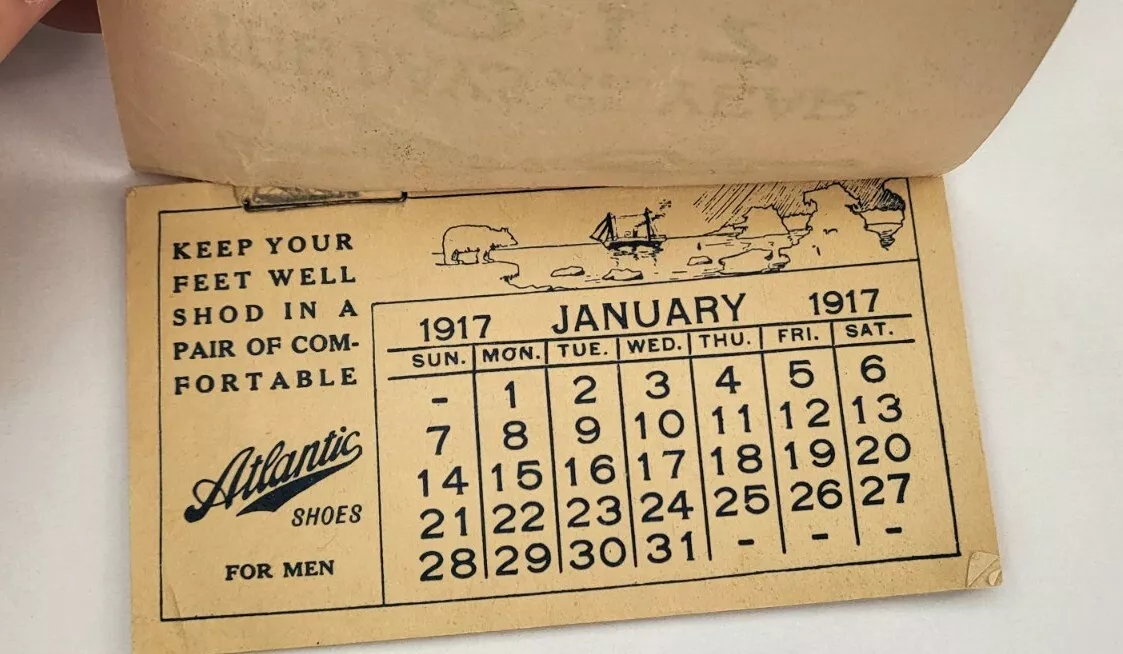 KEEP YOUR
FEET WELL
SHOD IN A
PAIR OF COM-
FORTABLE
Atlantic
SHOES
FOR MEN
1917 JANUARY 1917
SUN. MON. TUE. WED. THU. FRI. SAT.
- 1 2 3 4 5 6
7 8 9 10 11 12 13
14 15 16 17 18 19 20
21 22 23 24 25 26 27
28 29 30 31 - - -